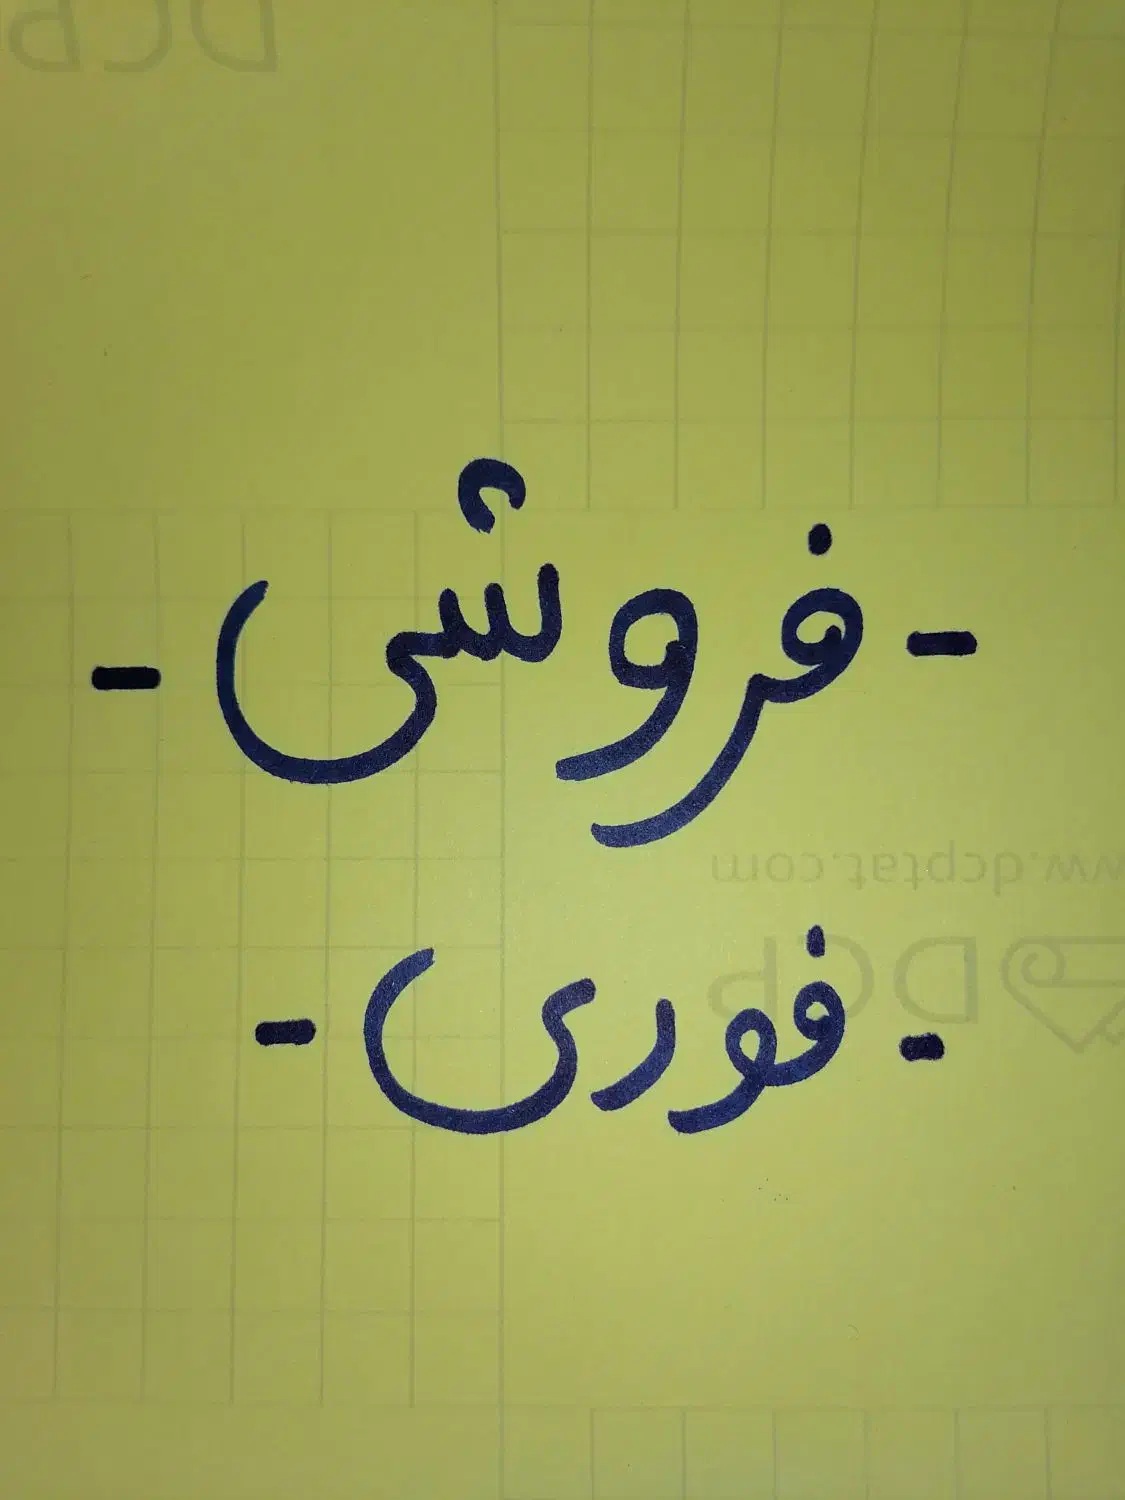 DCP
- فروش -
www.dcptat.com
DCP
- فوری -